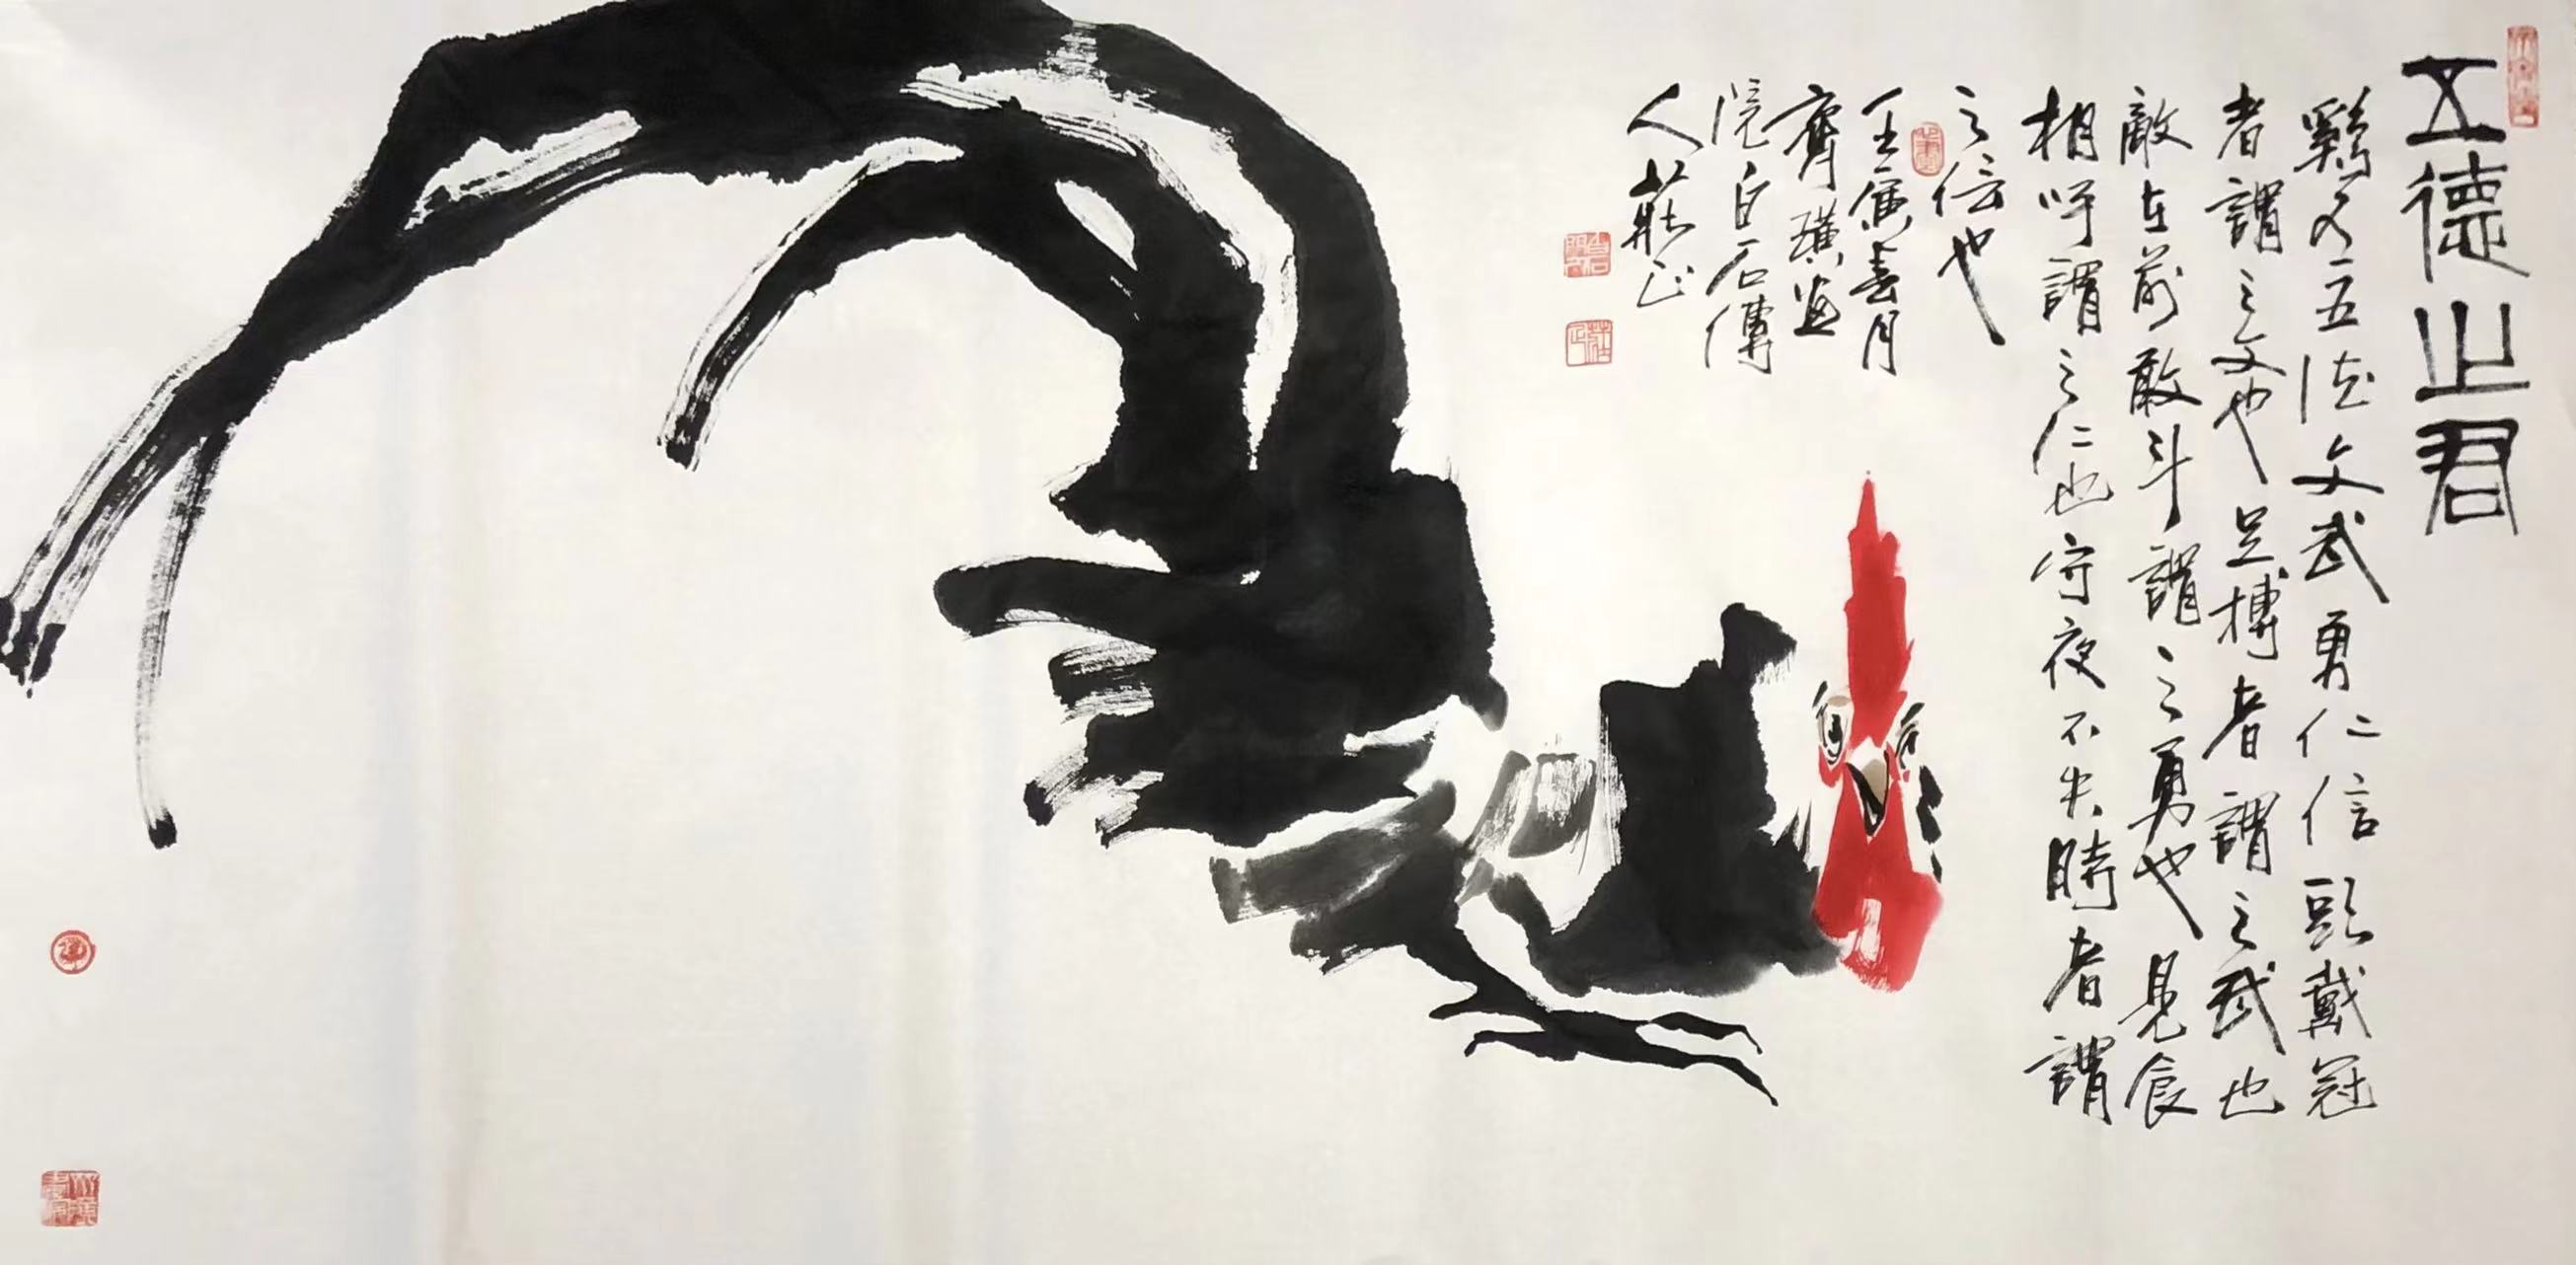 五德之君
鷄有五德文武勇仁信頭戴冠
者謂之文也足搏者謂之武也
敵在前敢斗謂之勇也見食
相呼謂之仁也守夜不失時者謂
之信也
壬寅春月
齊璜畫
院白石傳
人莊正